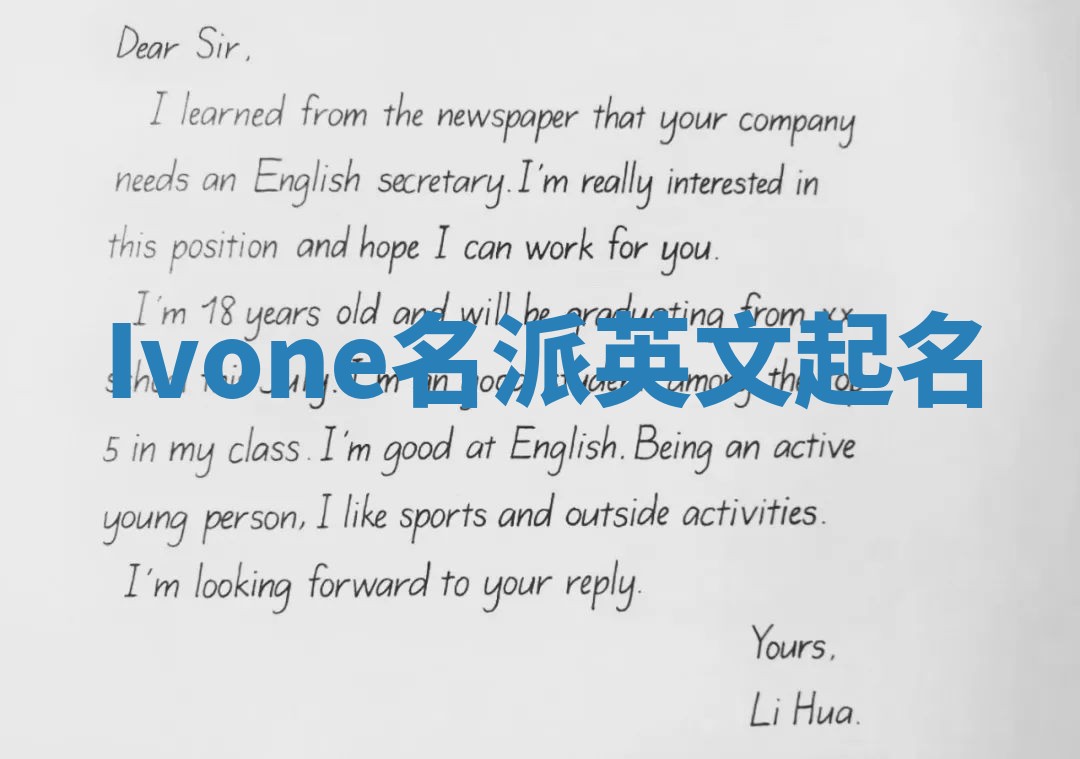 Dear Sir,
I learned from the newspaper that your company
needs an English secretary. I'm really interested in
this position and hope I can work for you.
I'm 18 years old and will be graduating from xx
Ivone名派英文起名
school this July. I'm an good student among the top
5 in my class. I'm good at English. Being an active
young person, I like sports and outside activities.
I'm looking forward to your reply.
Yours,
Li Hua.